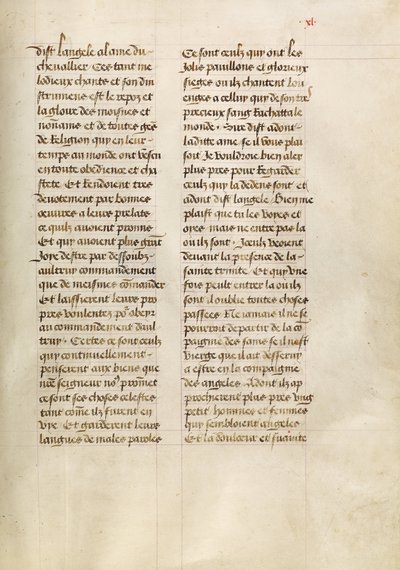 .xl.
dist langele a lame du
chevallier Ces tant me
lodieux chants et son din
strumens est le repoz et
la gloire des moisnes et
nonnains et de toutes gens
de Religion qui en leur
temps au monde ont vescu
en toute obedience et cha
stete Et rendoient tres
devotement par bonnes
oeuvres a leurs prelats
ce quilz avoient promis
Et qui avoient plus grant
Joye destre par dessoubz
aultruy commandement
que de meismes commander
Et laissierent leurs pro
pres voulentez pour obeyr
au commandement daul
truy . Certes ce sont ceulz
qui continuellement
penserent aux biens que
nostre seigneur nous promet
ce sont ses choses celestes
tant comme ilz furent en
vye Et garderent leurs
langues de males paroles
Ce sont ceulz qui ont les
Jolis pavillons et glorieux
sieges ou ilz chantent lou
enges a celluy qui de son tres
precieux sang Rachatta le
monde . Sire dist adont
ladite ame se il vous plai
soit Je vouldroie bien aler
plus pres pour Regarder
ceulz qui la dedens sont et
adont dist langele Bien me
plaist que tu les voyes et
oyes mais ne entre pas la
ou ilz sont . Iceulz voient
devant la presence de la
sainte trinite Et qui une
fois peult entrer la ou ilz
sont il oublie toutes choses
passees Ne jamais il ne se
pourroit departir de la com
paignie des sains se il nest
vierge que il ait desservy
a estre en la compaignie
des angeles . Adont ilz ap
procherent plus pres ung
petit hommes et femmes
qui sembloient angeles
Et la doulceur et suavite